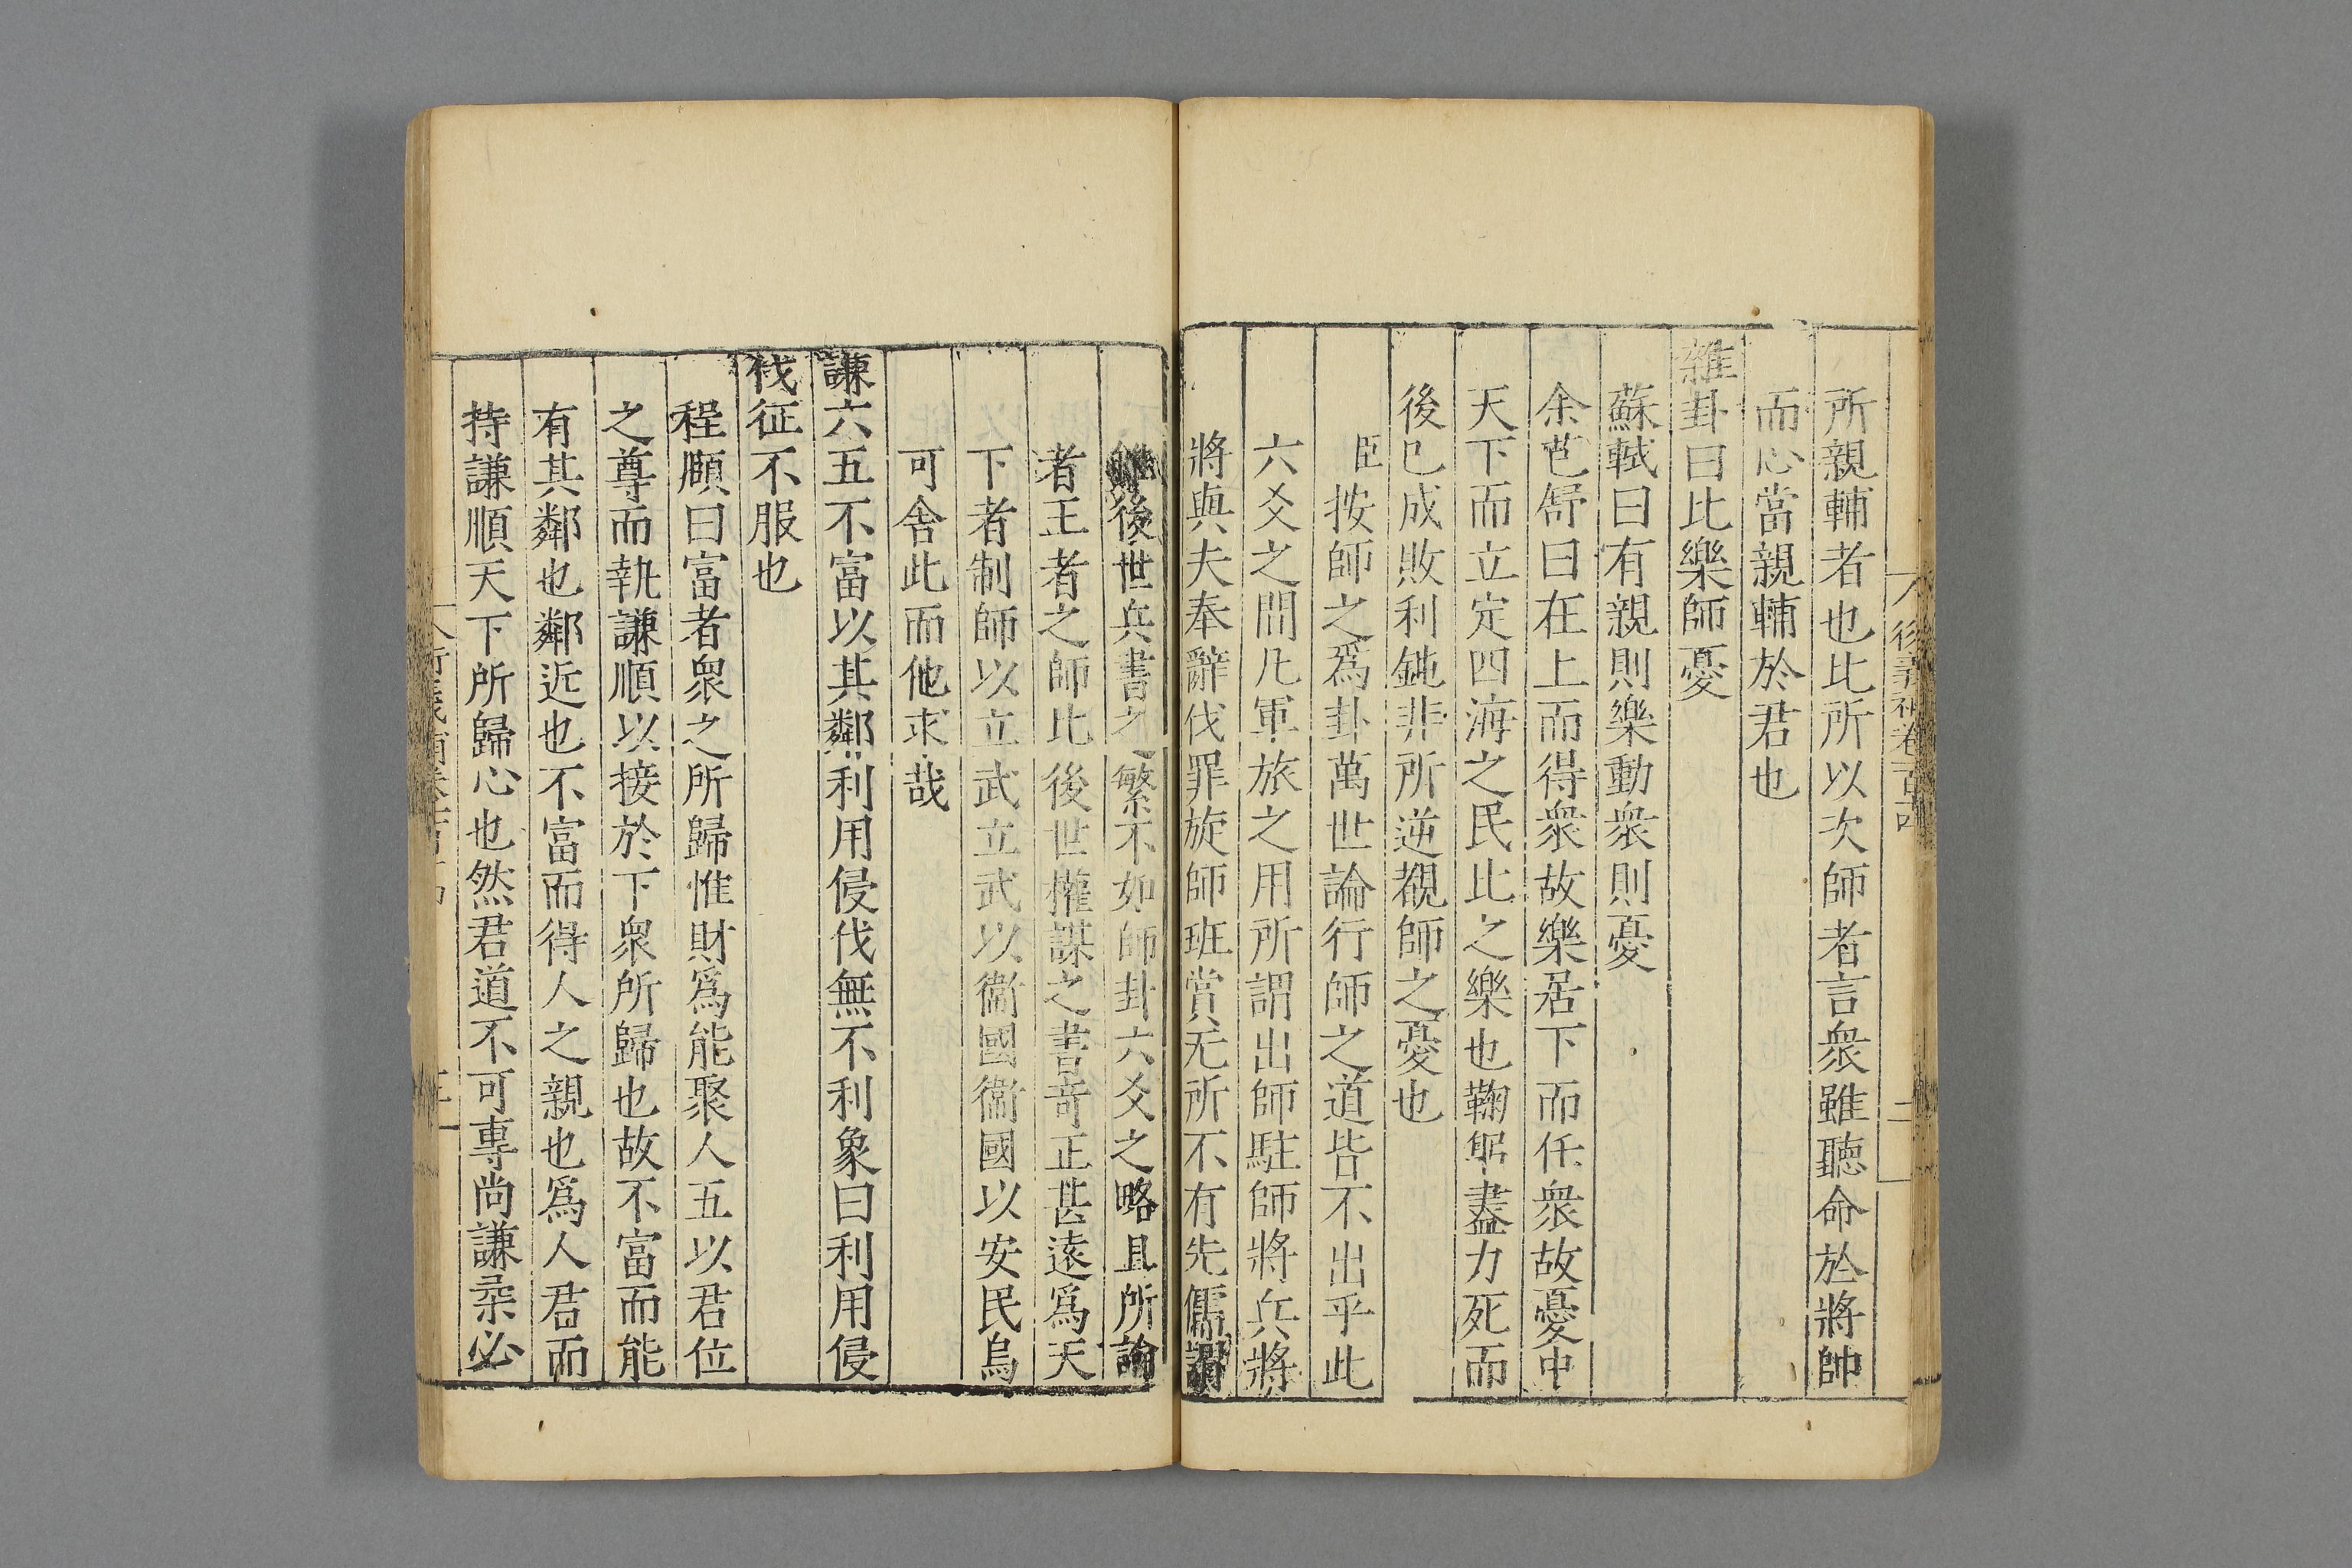 所親輔者也比所以次師者言衆雖聽命於將帥
而心當親輔於君也
雜卦曰比樂師憂
蘇軾曰有親則樂動衆則憂
余芑舒曰在上而得衆故樂居下而任衆故憂中
天下而立定四海之民比之樂也鞠躬盡力死而
後已成敗利鈍非所逆覩師之憂也
臣按師之爲卦萬世論行師之道皆不出乎此
六爻之間凡軍旅之用所謂出師駐師將兵將
將與夫奉辭伐罪旋師班賞无所不有先儒謂
後世兵書之繁不如師卦六爻之略且所論
者王者之師比後世權謀之書奇正甚遠爲天
下者制師以立武立武以衞國衞國以安民烏
可舍此而他求哉
謙六五不富以其鄰利用侵伐無不利象曰利用侵
伐征不服也
程頤曰富者衆之所歸惟財爲能聚人五以君位
之尊而執謙順以接於下衆所歸也故不富而能
有其鄰也鄰近也不富而得人之親也爲人君而
持謙順天下所歸心也然君道不可專尚謙柔必